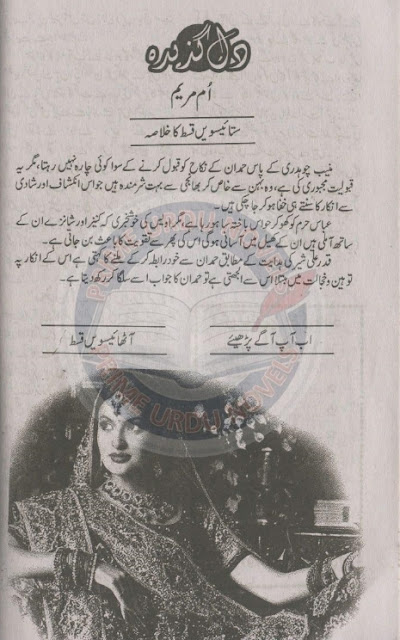 دل گزیدہ
اُم مریم
ستائیسویں قسط کا خلاصہ
منیب چوہدری کے پاس حمدان کے نکاح کو قبول کرنے کے سوا کوئی چارہ نہیں رہتا، مگر یہ
قبولیت مجبوری کی ہے، وہ بہن سے خاص کر بھانجی سے بہت شرمندہ ہیں جو اس انکشاف اور شادی
سے انکار کا سنتے ہی خفا ہو کر جا چکی ہیں۔
عباس حرم کو کھو کر حواس باختہ سا ہو رہا ہے، مگر اویس کی خوشخبری کہ کنیز اور شانزے ان کے
ساتھ آ ملی ہیں ان کے کھیل میں آسانی ہو گی اس کی پھر سے تقویت کا باعث بن جاتی ہے۔
قدر علی شیر کی ہدایت کے مطابق حمدان سے خود رابطہ کر کے ملنے کا کہتی ہے اس کے انکار پہ
توہین و خجالت میں مبتلا اس سے الجھتی ہے تو حمدان کا جواب اسے سلگا کر رکھ دیتا ہے۔
اب آپ آگے پڑھیئے
آٹھائیسویں قسط
PRIME URDU NOVELS